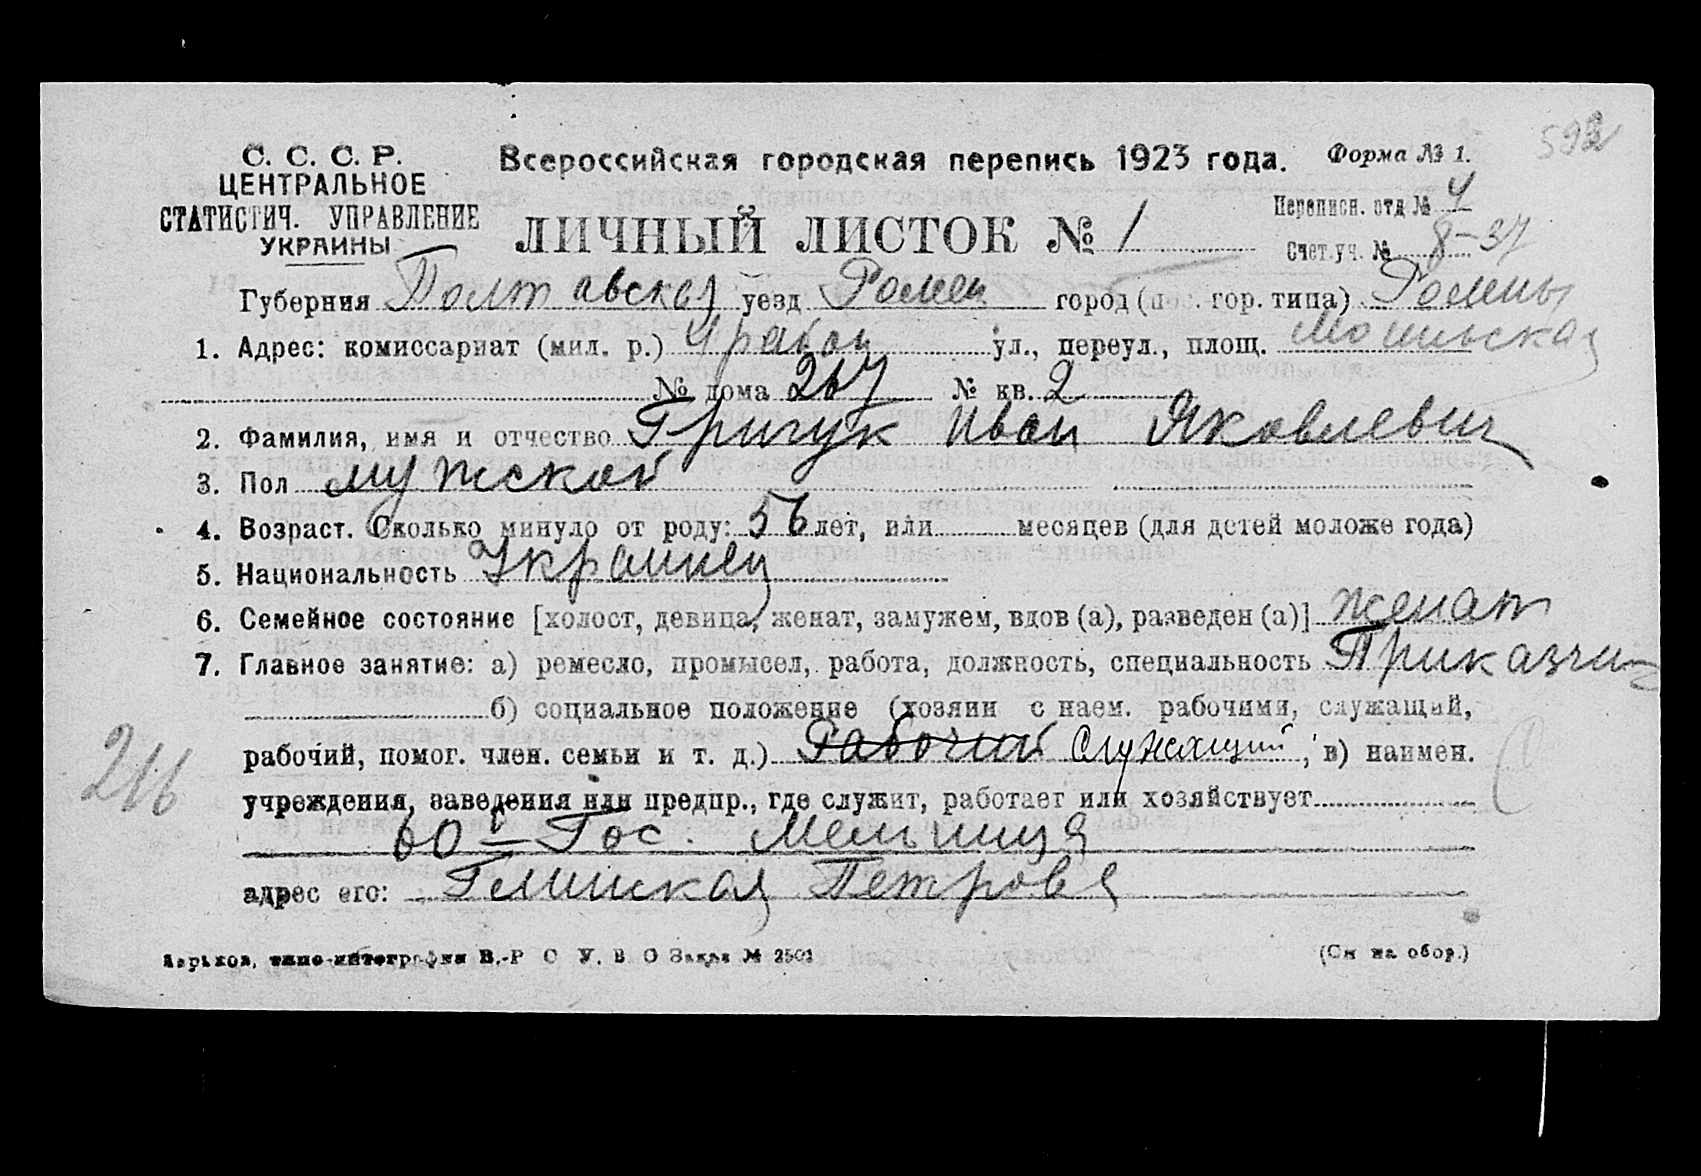 593
С. С. С. Р.
ЦЕНТРАЛЬНОЕ
СТАТИСТИЧ. УПРАВЛЕНИЕ
УКРАИНЫ
Всероссийская городская перепись 1923 года.
Форма № 1.
ЛИЧНЫЙ ЛИСТОК № 1
Переписн. отд № 4
Счет.уч. № 8-37
Губерния Полтавская уезд Ромен город (пос. гор. типа) Ромены
1. Адрес: комиссариат (мил. р.) 4 район ул., переул., площ.
№ дома № кв. 2
2. Фамилия, имя и отчество Грищук Иван Яковлевич
3. Пол мужской
4. Возраст. Сколько минуло от роду: 56 лет, или месяцев (для детей моложе года)
5. Национальность Украинец
6. Семейное состояние [холост, девица, женат, замужем, вдов (а), разведен (а)] женат
7. Главное занятие: а) ремесло, промысел, работа, должность, специальность Приказчик
б) социальное положение (хозяин с наем. рабочими, служащий,
рабочий, помог. член. семьи и т. д.) Рабочий Служащий, в) наимен.
учреждения, заведения или предпр., где служит, работает или хозяйствует
Гос. Мельница
адрес его: Глинская Петрова
216
Харьков, типо-литография В.-Р С У. В О Заказ № 2501
(См на обор.)